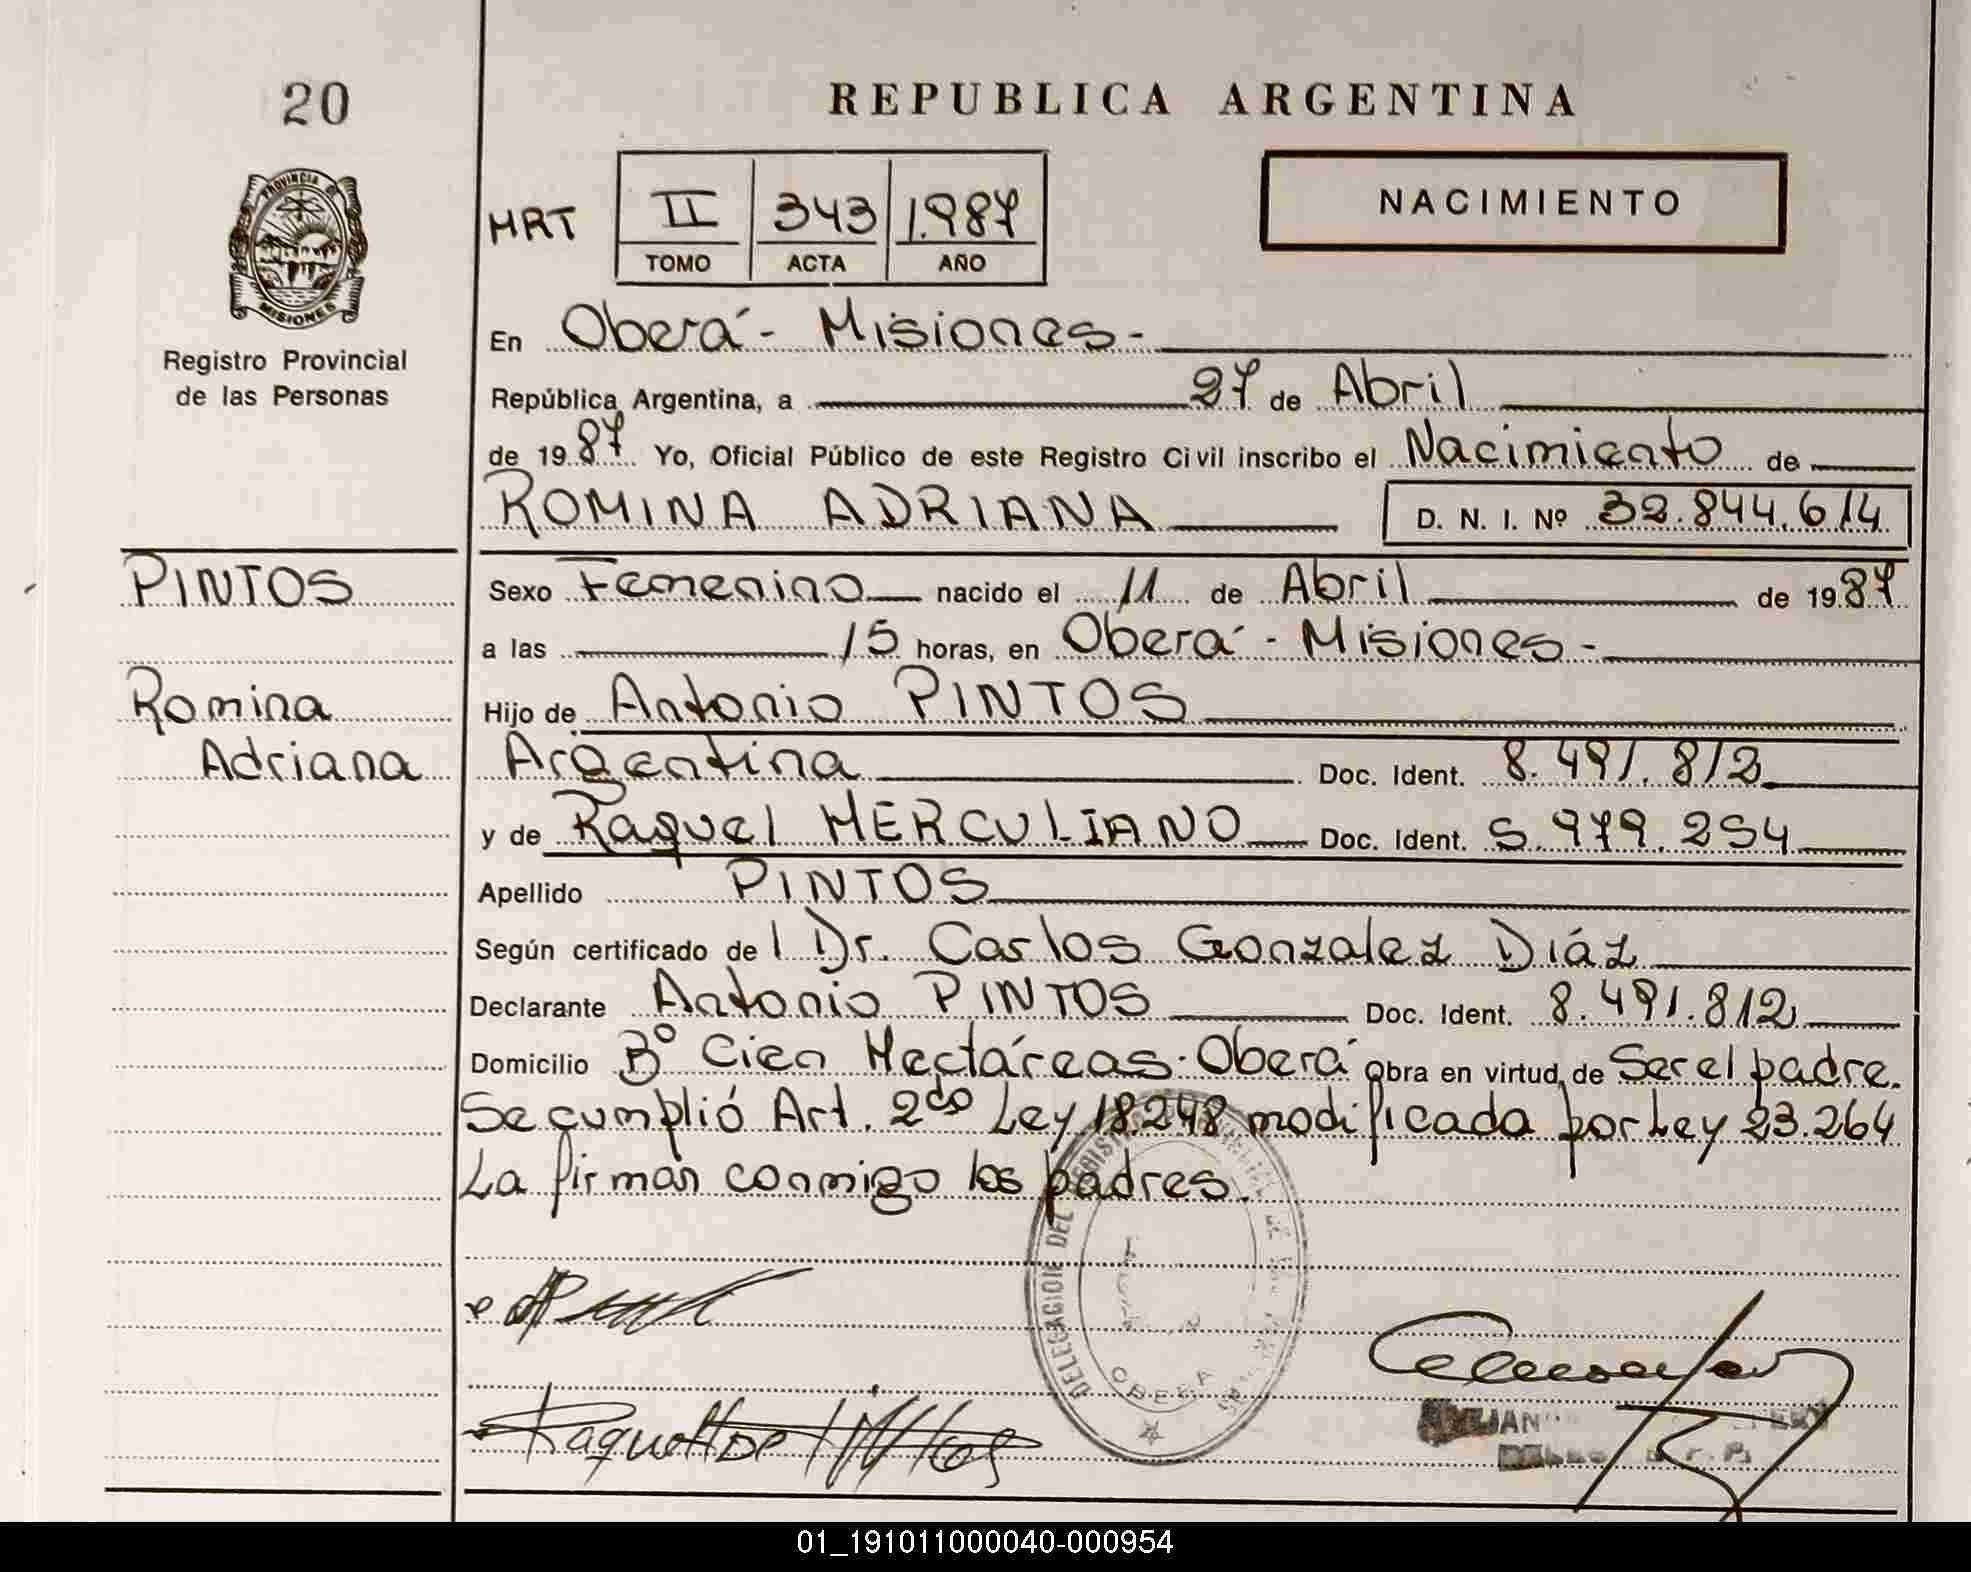 20
REPUBLICA ARGENTINA
NACIMIENTO
HRT II 343 1.987
TOMO ACTA AÑO
PROVINCIA DE
MISIONES
Registro Provincial
de las Personas
En Oberá - Misiones -
República Argentina, a 27 de Abril
de 1987 Yo, Oficial Público de este Registro Civil inscribo el Nacimiento de
ROMINA ADRIANA D. N. I. Nº 32.844.614
PINTOS
Romina
Adriana
Sexo Femenino nacido el 11 de Abril de 1987
a las 15 horas, en Oberá - Misiones -
Hijo de Antonio PINTOS
Argentina Doc. Ident. 8.491.812
y de Raquel MERCULIANO Doc. Ident. 5.979.254
Apellido PINTOS
Según certificado de l Dr. Carlos Gonzalez Diáz
Declarante Antonio PINTOS Doc. Ident. 8.491.812
Domicilio Bº Cien Hectáreas - Oberá Obra en virtud de Ser el padre.
Se cumplió Art. 2do Ley 18.248 modificada por Ley 23.264
La firman conmigo los padres.
DELEGACION DEL REGISTRO
OBERA
01_191011000040-000954